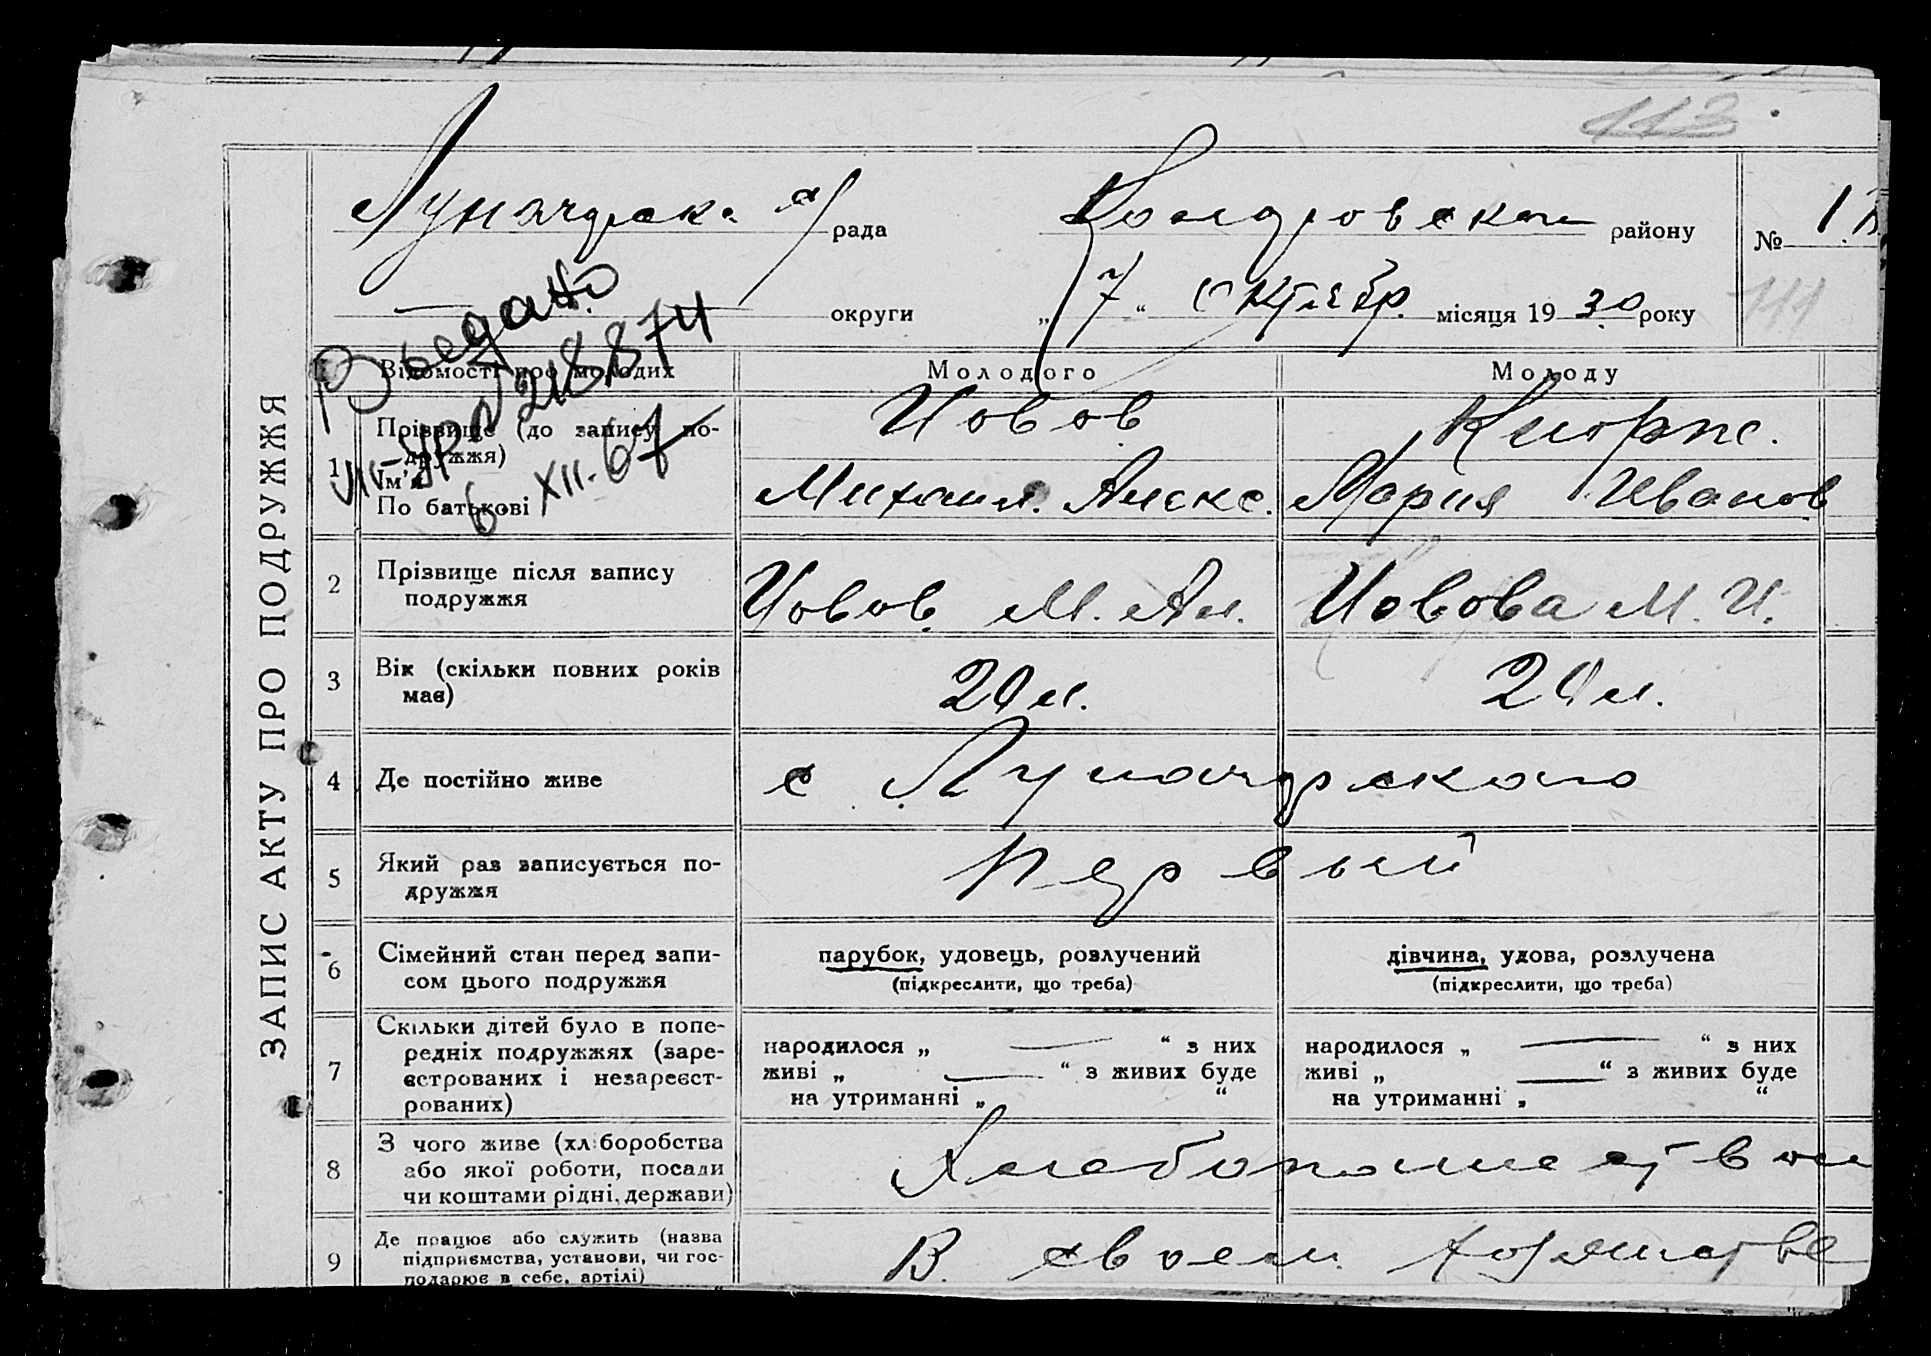 113
ЗАПИС АКТУ ПРО ПОДРУЖЖЯ
рада
району
№ 1
округи „7“ Октябр. місяця 1930 року
111
Выдано
№ 218874
6 XII-67
Відомості про молодих Молодого Молоду
1 Прізвище (до запису по-
дружжя)
Цовов
Ім'я
По батькові
Михаил. Алекс. Мария Иванов
2 Прізвище після запису
подружжя
Цовов М. Ал. Цовова М. И.
3 Вік (скільки повних років
має)
20 л. 20 л.
4 Де постійно живе
с Луначарского
5 Який раз записується по-
дружжя
первый
6 Сімейний стан перед запи-
сом цього подружжя
парубок, удовець, розлучений
(підкреслити, що треба)
дівчина, удова, розлучена
(підкреслити, що треба)
7 Скільки дітей було в попе-
редніх подружжях (заре-
єстрованих і незареєст-
рованих)
народилося „ — “ з них
живі „ — “ з живих буде
на утриманні „ “
народилося „ — “ з них
живі „ — “ з живих буде
на утриманні „ “
8 З чого живе (хліборобства
або якої роботи, посади
чи коштами рідні, держави)
Хлебопашеством
9 Де працює або служить (назва
підприємства, установи, чи гос-
подарює в себе, артілі)
В своем хозяйстве